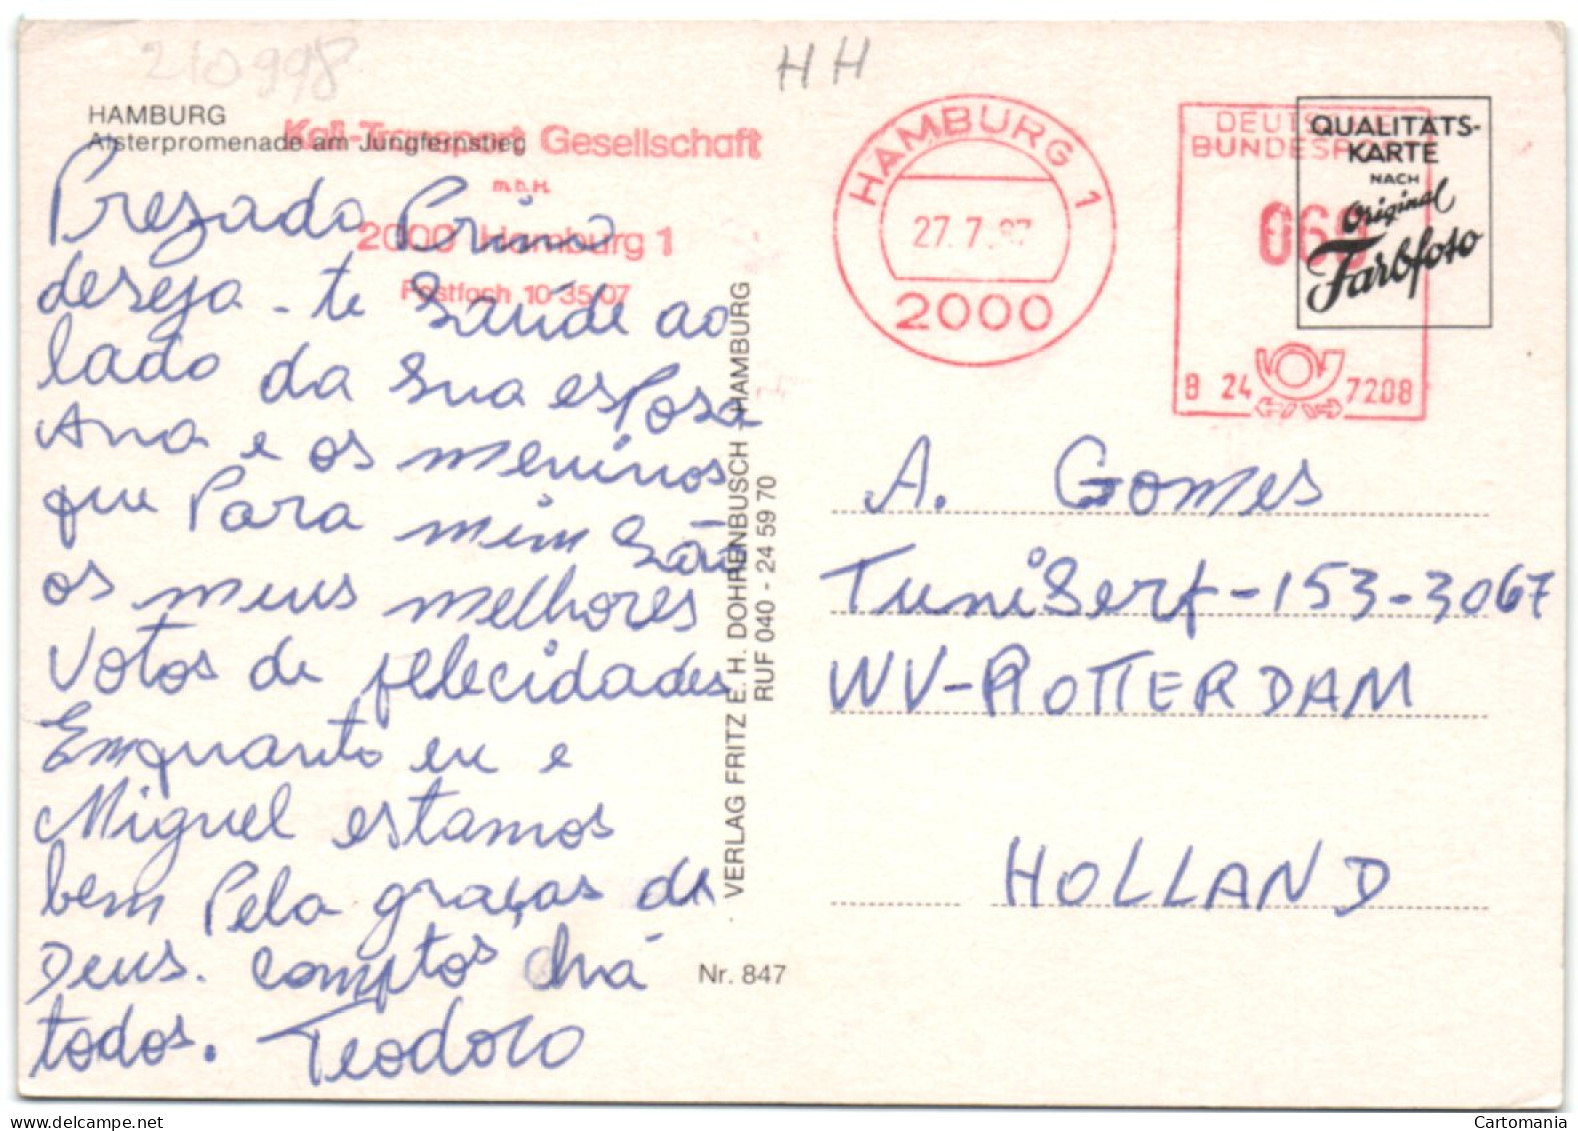 210998
HH
HAMBURG
Alsterpromenade am Jungfernstieg
Kali-Transport Gesellschaft
m.b.H.
2000 Hamburg 1
Postfach 10 35 07
HAMBURG 1
27.7.87
2000
DEUTSCHE
BUNDESPOST
060
B 24 7208
QUALITÄTS-
KARTE
NACH
Original
Farbfoto
Prezado Primo
deseja-te Saúde ao
lado da sua esPosa
Ana e os meninos
que Para mim São
os meus melhores
Votos de felecidades
Emquanto eu e
Miguel estamos
bem Pela graças de
Deus. comptos há
todos. Teodoro
VERLAG FRITZ E. H. DOHRENBUSCH HAMBURG
RUF 040 - 24 59 70
Nr. 847
A. Gomes
TuniSerf-153-3067
WV-ROTTERDAM
HOLLAND
Cartomania
delcampe.net